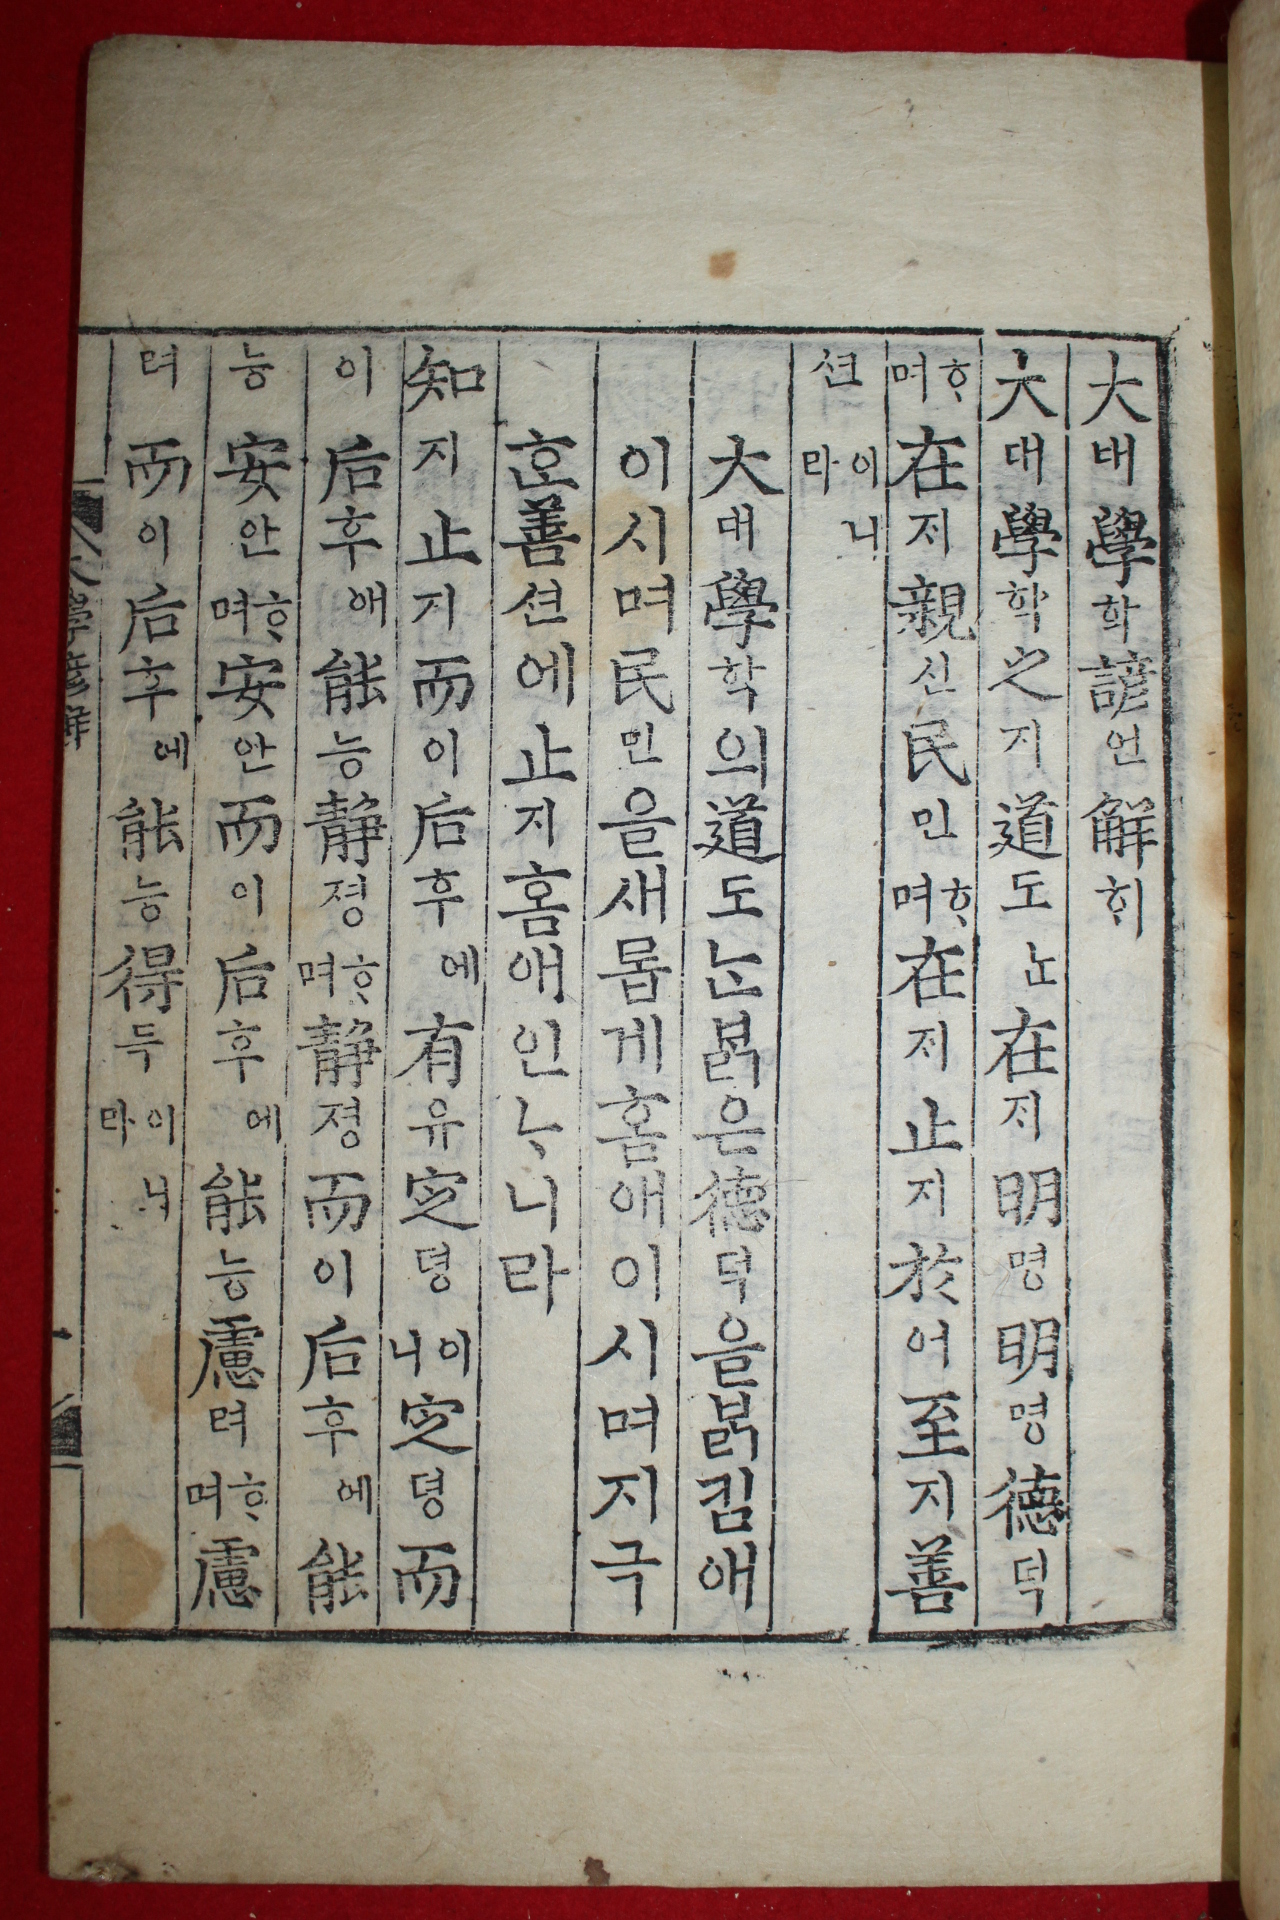 大태學학諺언解ᄒᆡ
大대學학之지道도ᄂᆞᆫ在ᄌᆡ明명明명德덕
ᄒᆞ며在ᄌᆡ親신民민ᄒᆞ며在ᄌᆡ止지於어至지善
션이니라
大대學학의道도ᄂᆞᆫᄇᆞᆰ은德덕을ᄇᆞᆰ킴애
이시며民민을새롭게홈애이시며지극
ᄒᆞᆫ善션에止지홈애인ᄂᆞ니라
知지止지而이后후에有유定뎡이니定뎡而
이后후애能능静졍ᄒᆞ며静졍而이后후에能
능安안ᄒᆞ며安안而이后후에能능慮려ᄒᆞ며慮
려而이后후에能능得득이니라
大學諺解